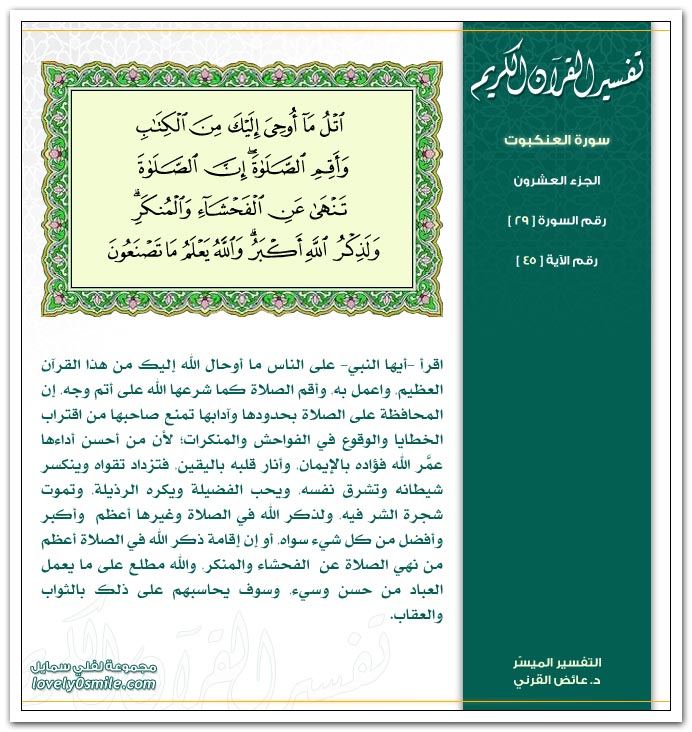 تفسير القرآن الكريم
سورة العنكبوت
الجزء العشرون
رقم السورة [ ٢٩ ]
رقم الآية [ ٤٥ ]
ٱتۡلُ مَآ أُوحِيَ إِلَيۡكَ مِنَ ٱلۡكِتَٰبِ
وَأَقِمِ ٱلصَّلَوٰةَۖ إِنَّ ٱلصَّلَوٰةَ
تَنۡهَىٰ عَنِ ٱلۡفَحۡشَآءِ وَٱلۡمُنكَرِۗ
وَلَذِكۡرُ ٱللَّهِ أَكۡبَرُۗ وَٱللَّهُ يَعۡلَمُ مَا تَصۡنَعُونَ
اقرأ -أيها النبي- على الناس ما أوحال الله إليك من هذا القرآن
العظيم، واعمل به، وأقم الصلاة كما شرعها الله على أتم وجه، إن
المحافظة على الصلاة بحدودها وآدابها تمنع صاحبها من اقتراب
الخطايا والوقوع في الفواحش والمنكرات؛ لأن من أحسن أداءها
عمَّر الله فؤاده بالإيمان، وأنار قلبه باليقين، فتزداد تقواه وينكسر
شيطانه وتشرق نفسه، ويحب الفضيلة ويكره الرذيلة، وتموت
شجرة الشر فيه، ولذكر الله في الصلاة وغيرها أعظم وأكبر
وأفضل من كل شيء سواه، أو إن إقامة ذكر الله في الصلاة أعظم
من نهي الصلاة عن الفحشاء والمنكر، والله مطلع على ما يعمل
العباد من حسن وسيء، وسوف يحاسبهم على ذلك بالثواب
والعقاب.
تفسير القرآن الكريم
مجموعة لفلي سمايل
lovely0smile.com
التفسير الميسّر
د. عائض القرني